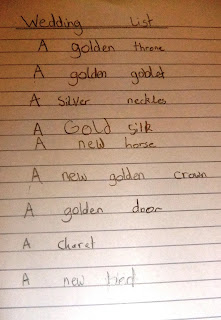 Wedding List
A golden throne
A golden goblet
A silver neckles
A Gold silk
A new horse
A new golden crown
A golden door
A charet
A new